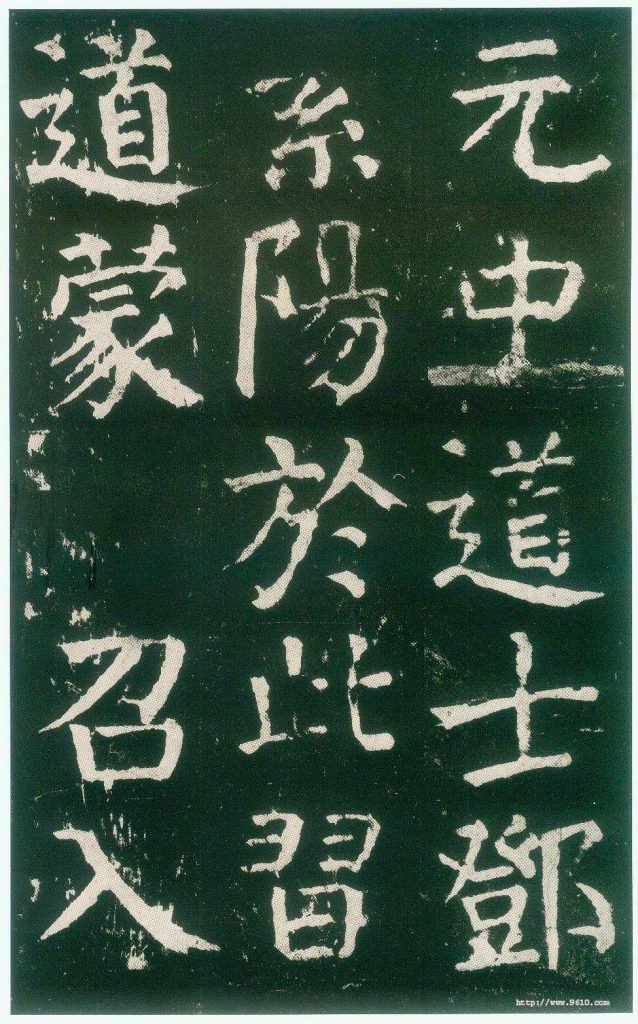 元中道士鄧
紫陽於此習
道蒙 召入
http://www.9610.com